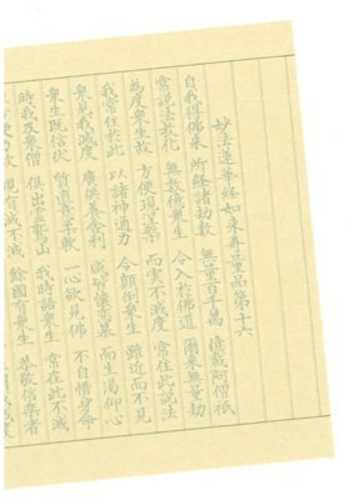 妙法蓮華經如來壽量品第十六
自我得佛來 所經諸劫數 無量百千萬 億載阿僧祇
常說法教化 無數億衆生 令入於佛道 爾來無量劫
為度衆生故 方便現涅槃 而實不滅度 常住此說法
我常住於此 以諸神通力 令顛倒衆生 雖近而不見
衆見我滅度 廣供養舍利 咸皆懷戀慕 而生渴仰心
衆生既信伏 質直意柔軟 一心欲見佛 不自惜身命
時我及衆僧 俱出靈鷲山 我時語衆生 常在此不滅
方便力故 現有滅不滅 餘國有衆生 恭敬信樂者